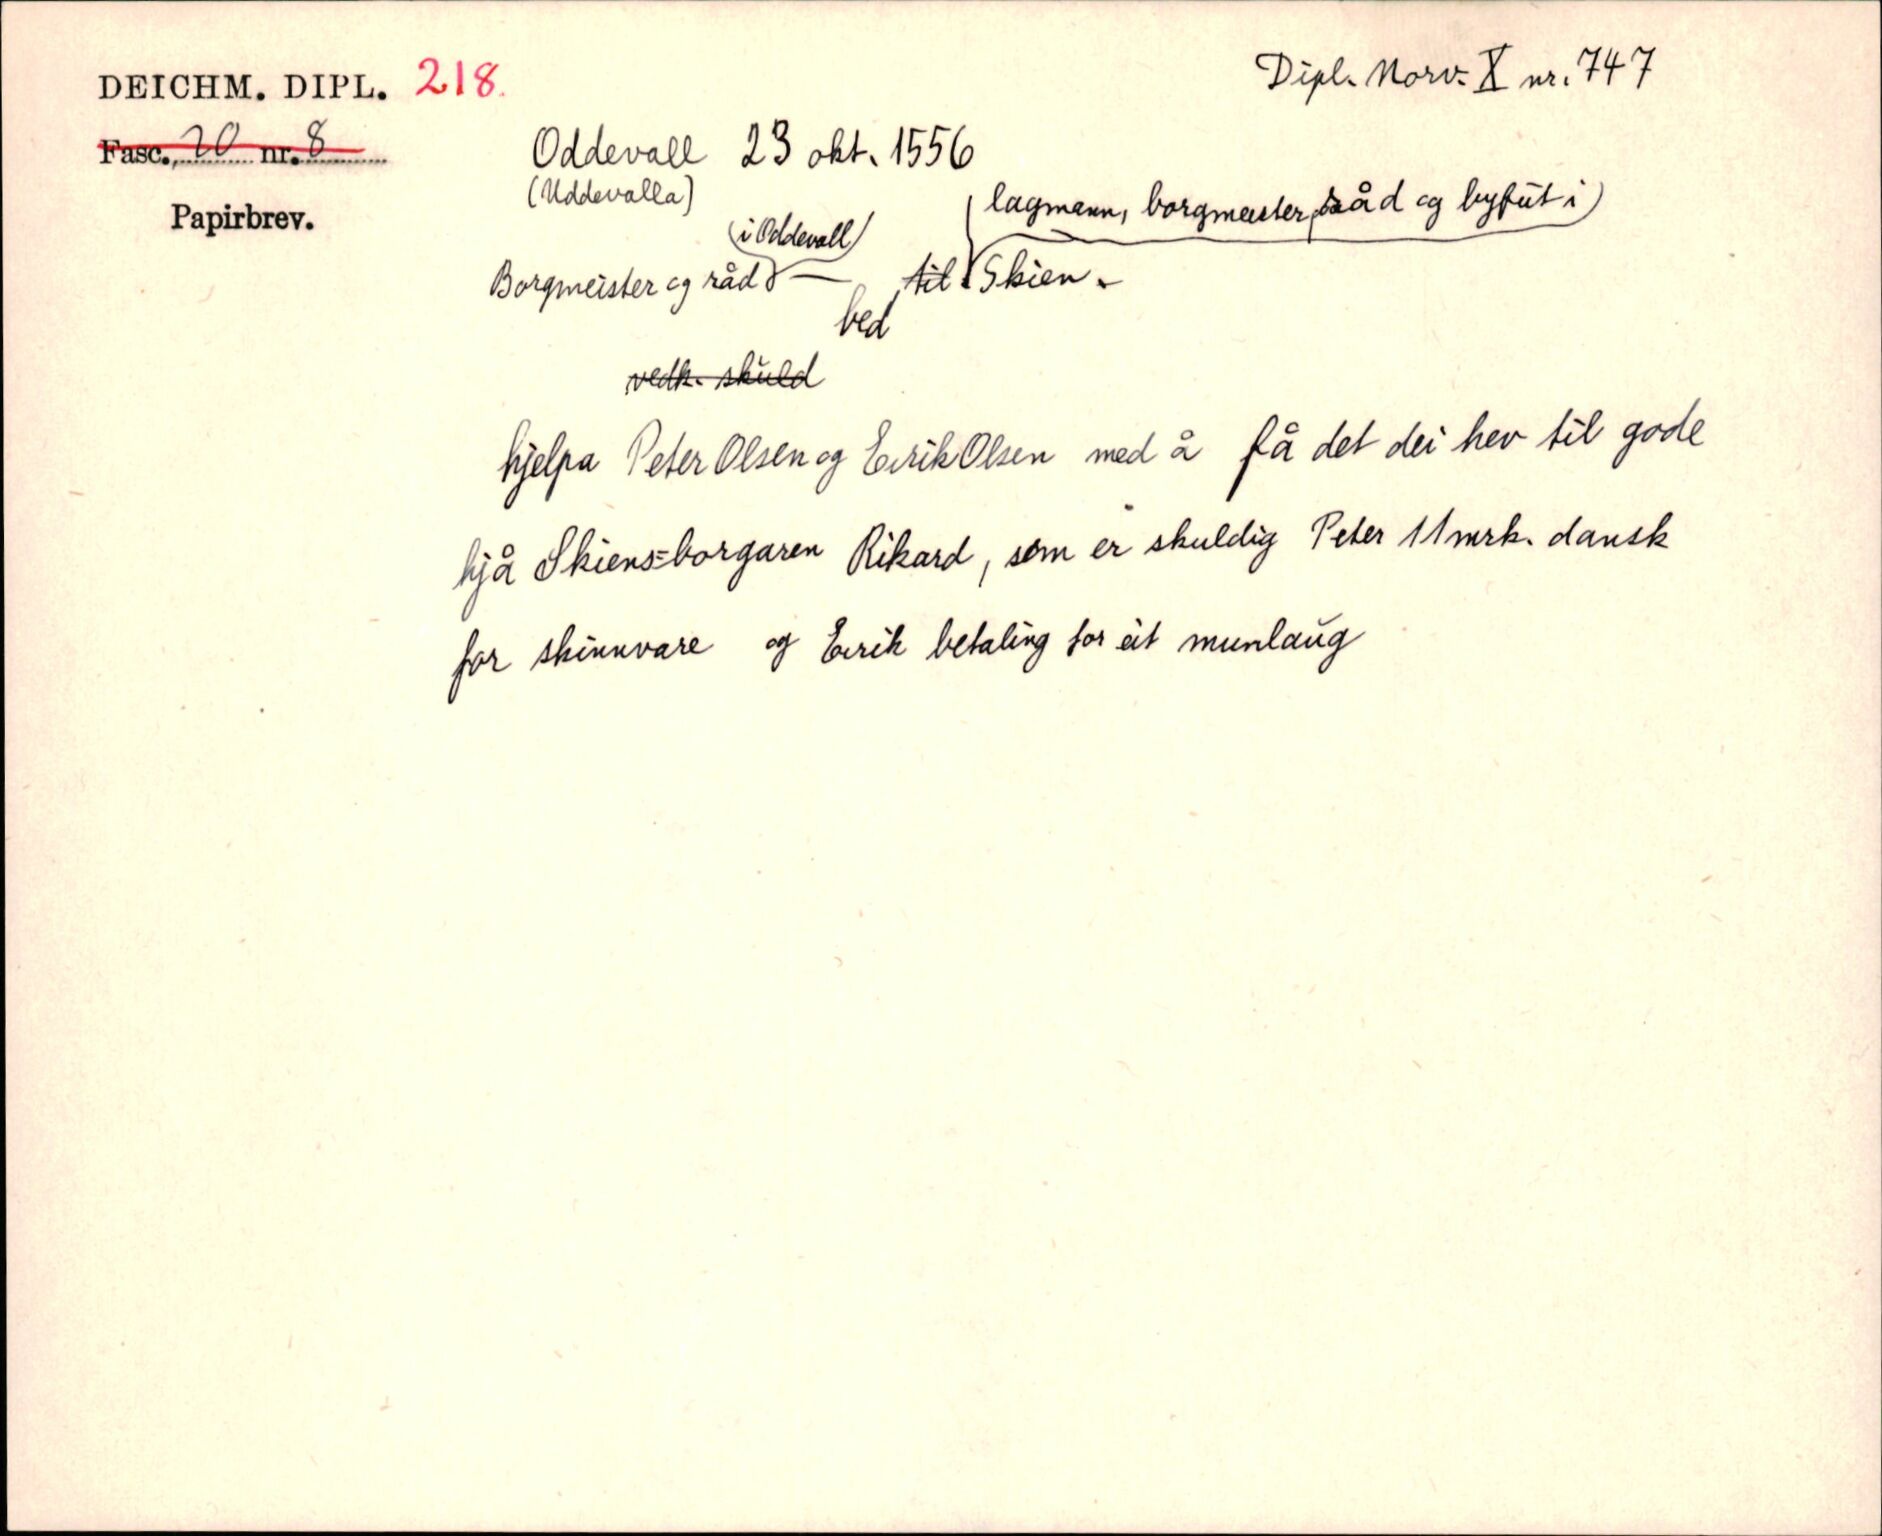 DEICHM. DIPL. 218.
Dipl. Norv. X nr. 747
Fasc. 20 nr. 8
Oddevall 23 okt. 1556
(Uddevalla)
Papirbrev.
lagmann, borgmeister, råd og byfut i
i Oddevall
Borgmeister og råd — til Skien.
bed
vedk. skuld
hjelpa Peter Olsen og Eirik Olsen med å få det dei hev til gode
hjå Skiens-borgaren Rikard, som er skuldig Peter 11 mrk. dansk
for skinnvare og Eirik betaling for eit munlaug